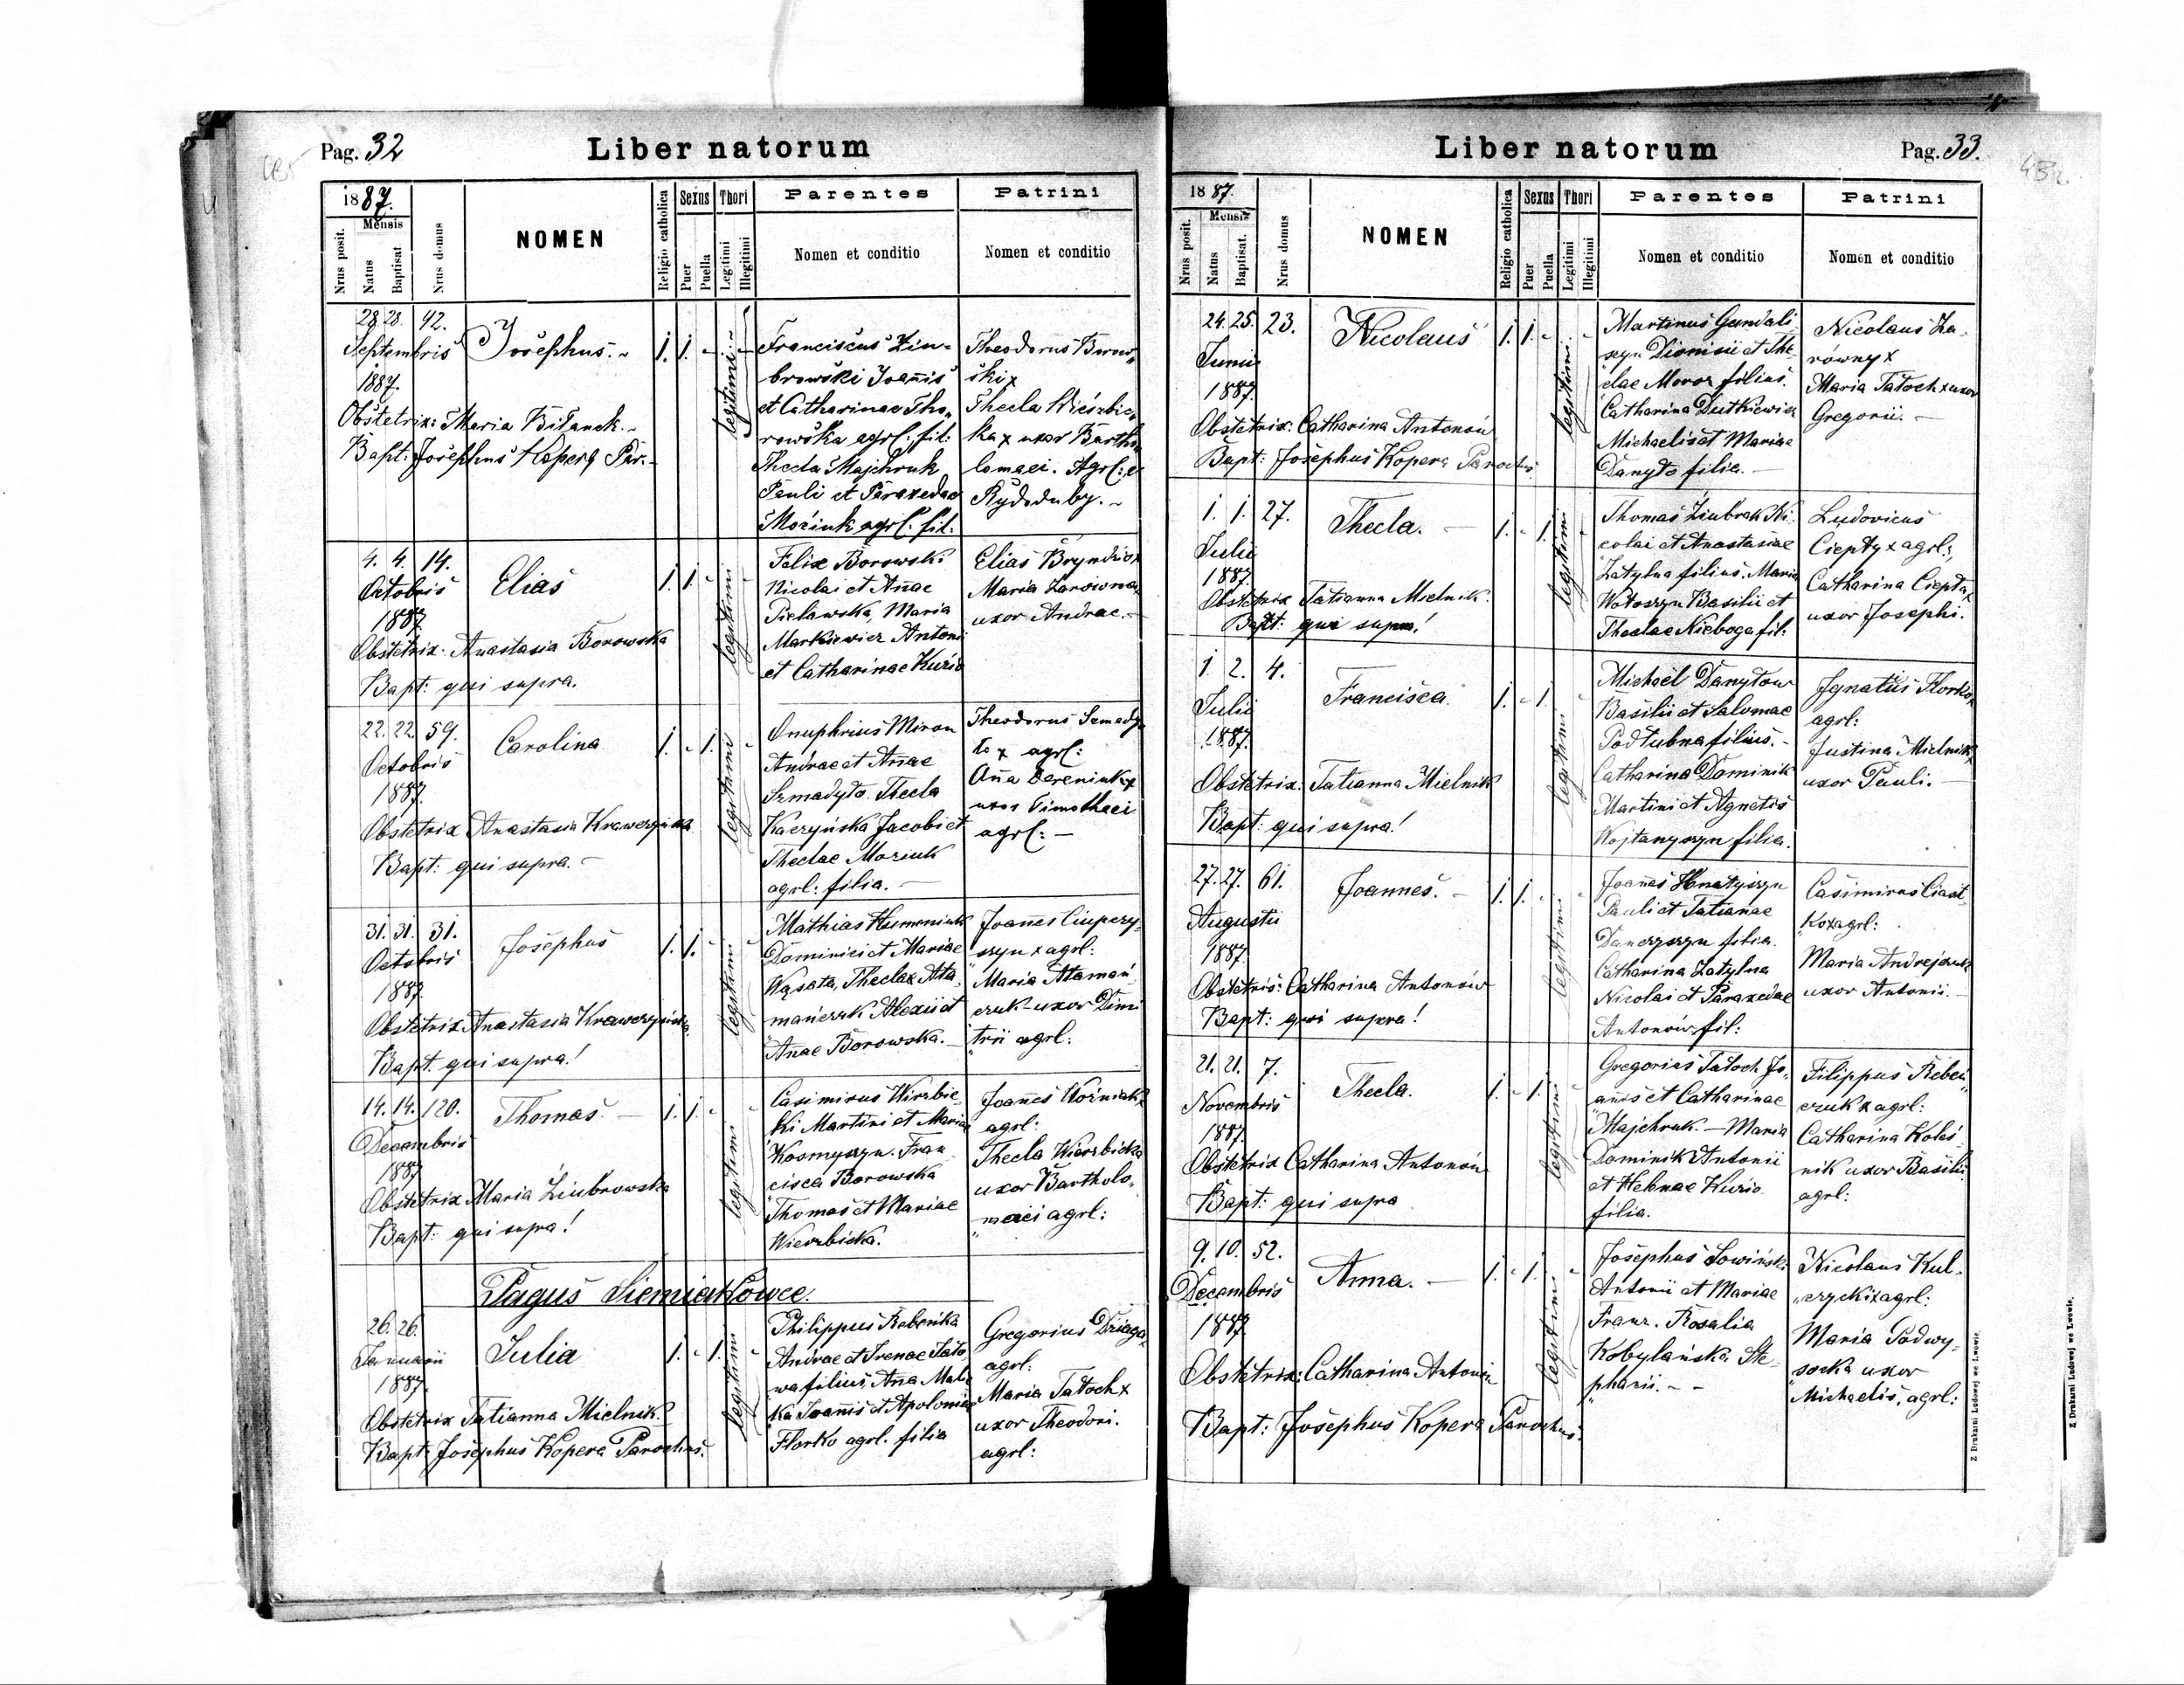 Pag. 32
Liber natorum
1887.
Nrus posit.
Mensis
Natus
Baptisat
Nrus domus
NOMEN
Religio catholica
Sexus
Puer
Puella
Thori
Legitimi
Illegitimi
Parentes
Nomen et conditio
Patrini
Nomen et conditio
28. 28. 42.
Septembris
1887.
Josephus.
1. 1. -
legitimi
Obstetrix: Maria Bilanek.
Bapt: Josephus Kopera Par.
Franciscus Ziu-
browski Joanis
et Catharinae Tho-
rowska agrl: fil:
Thecla Majchruk
Pauli et Paraxedae
Moziuk agrl: fil:
Theodorus Borow-
ski x
Thecla Wierzbic-
ka x uxor Bartho-
lomaei. Agrl: e
Rydoduby.
4. 4. 14.
Octobris
1887
Elias
1. 1. -
legitimi
Obstetrix: Anastasia Borowska
Bapt: qui supra.
Felix Borowski
Nicolai et Anae
Pielawska, Maria
Markiewicz Antoni
et Catharinae Kurio
Elias Bryndzio x
Maria Zarowna x
uxor Andrae.
22. 22. 59.
Octobris
1887.
Carolina
1. - 1.
legitimi
Obstetrix Anastasia Krawczyńska
Bapt: qui supra.
Onuphrius Miron
Andrae et Anae
Szmadyło. Thecla
Kaczyńska Jacobi et
Theclae Moziuk
agrl: filia.
Theodorus Szmady-
ło x agrl:
Ana Dereniuk x
uxor Timothaei
agrl:
31. 31. 31.
Octobris
1887.
Josephus
1. 1. -
legitimi
Obstetrix Anastasia Krawczyńska
Bapt: qui supra!
Mathias Humeniuk
Dominici et Mariae
Wąsata, Theclax Ata-
mańczuk Alexii et
Anae Borowska.
Joanes Ciupery-
szyn x agrl:
Maria Atamań-
czuk - uxor Dimi
trii agrl:
14. 14. 120.
Decembris
1887
Thomas.
1. 1. -
legitimi
Obstetrix Maria Ziubrowska
Bapt: qui supra!
Casimirus Wirzbic-
ki Martini et Mariae
Kosmyszyn. Fran
cisca Borowska
Thomas et Mariae
Wierzbicka.
Joanes Woźniak x
agrl:
Thecla Wierzbicka
uxor Bartholo-
maei agrl:
Pagus Siemiakowce.
26. 26.
Januarii
1887.
Julia
1. - 1.
legitimi
Obstetrix Tatianna Mielnik.
Bapt: Josephus Kopera Parochus.
Philippus Rebenka
Andrae et Irenae Sało
wa filius, Ana Mali
ka Joanis et Apoloniae
Florko agrl. filia
Gregorius Dziaga x
agrl:
Maria Tatoch x
uxor Theodori.
agrl:
Liber natorum
Pag. 33.
1887.
Nrus posit.
Mensis
Natus
Baptisat.
Nrus domus
NOMEN
Religio catholica
Sexus
Puer
Puella
Thori
Legitimi
Illegitimi
Parentes
Nomen et conditio
Patrini
Nomen et conditio
24. 25. 23.
Junii
1887.
Nicolaus
1. 1. -
legitimi
Obstetrix: Catharina Antonów
Bapt: Josephus Kopera Parochus
Martinus Gundali
szyn Dionisii et The-
clae Moroz filius.
Catharina Dutkiewicz
Michaelis et Mariae
Danyło filia.
Nicolaus Za-
równy x
Maria Tatoch x uxor
Gregorii.
1. 1. 27.
Julii
1887.
Thecla.
1. - 1.
legitimi
Obstetrix Tatianna Mielnik.
Bapt: qui supra!
Thomas Ziubrak Ni
colai et Anastasiae
Zatylna filius. Maria
Wołoszyn Basilii et
Theclae Nieboga fil:
Ludovicus
Ciepły x agrl:,
Catharina Ciepła x
uxor Josephi.
1. 2. 4.
Julii
1887.
Francisca
1. - 1.
legitimi
Obstetrix: Tatianna Mielnik
Bapt: qui supra!
Michaël Danyłow
Basilii et Salomae
Podłubna filius.
Catharina Dominik
Martini et Agnetis
Wojtanyszyn filia.
Ignatius Florko x
agrl:
Justina Mielnik x
uxor Pauli.
27. 27. 61.
Augusti
1887.
Joannes.
1. 1. -
legitimi
Obstetrix: Catharina Antonów
Bapt: qui supra!
Joanes Hnatyszyn
Pauli et Tatianae
Danczyszyn filia.
Catharina Zatylna
Nicolai et Paraxedae
Antonów fil:
Casimirus Ciast-
ko x agrl:
Maria Andrejczuk
uxor Antonii.
21. 21. 7.
Novembris
1887.
Thecla.
1. - 1.
legitimi
Obstetrix Catharina Antonów
Bapt: qui supra
Gregorius Tatoch Jo-
anis et Catharinae
Majchruk. - Maria
Dominik Antonii
et Helenae Kurio
filia.
Filippus Reben-
czuk x agrl:
Catharina Koleś-
nik uxor Basilii
agrl:
9. 10. 52.
Decembris
1887.
Anna.
1. - 1.
legitimi
Obstetrix: Catharina Antonów
Bapt: Josephus Kopera Parochus.
Josephus Sowiński
Antonii et Mariae
Franz. Rosalia
Kobylańska Ste-
phanii.
Nicolaus Kul-
czycki x agrl:
Maria Podwy-
socka uxor
Michaelis, agrl:
Z Drukarni Ludowej we Lwowie.
Z Drukarni Ludowej we Lwowie.